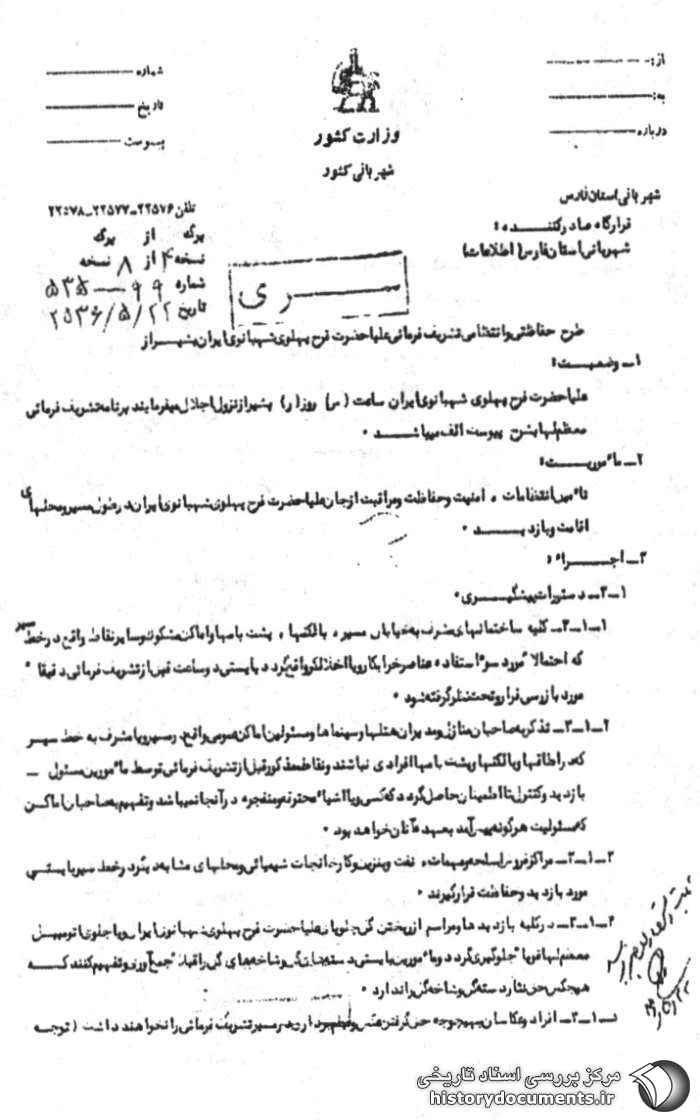 از:
به:
درباره
وزارت کشور
شهربانی کشور
شماره
تاریخ
پیوست
شهربانی استان فارس
قرارگاه صادرکننده:
شهربانی استان فارس (اطلاعات)
تلفن ۲۲۵۷۶-۲۲۵۷۷-۲۲۵۷۸
برگ از برگ
نسخه ۴ از ۸ نسخه
شماره ۹۹ — ۵۳۵
تاریخ ۲۵۳۶/۵/۲۲
سری
طرح حفاظتی و انتظامی تشریف فرمائی علیاحضرت فرح پهلوی شهبانوی ایران بشیراز
۱ـ وضعیت:
علیاحضرت فرح پهلوی شهبانوی ایران ساعت (س) روز (ر) بشیراز نزول اجلال میفرمایند برنامه تشریف فرمائی
معظم لها بشرح پیوست الف میباشد.
۲ـ مأموریت:
تأمین انتظامات، امنیت و حفاظت و مراقبت از جان علیاحضرت فرح پهلوی شهبانوی ایران در طول مسیر و محلهای
اقامت و بازدید.
۳ـ اجراء:
۱ـ۳ـ دستورات پیشگیری:
۱ـ۱ـ۳ـ کلیه ساختمانهای مشرف به خیابان مسیر، بالکنها، پشت بامها و اماکن مشکوک و سایر نقاط واقع در خط سیر
که احتمالا مورد سوء استفاده عناصر خرابکار و یا اخلالگر واقع گردد بایستی دو ساعت قبل از تشریف فرمائی دقیقا
مورد بازرسی قرار و تحت نظر گرفته شود.
۲ـ۱ـ۳ـ تذکر به صاحبان منازل و مدیران هتلها و سینماها و مسئولین اماکن عمومی واقع در مسیر و یا مشرف به خط سیر
که در اطاقها و بالکنها و پشت بامها افرادی نباشند و نقاط مذکور قبل از تشریف فرمائی توسط مأمورین مسئول ـ
بازدید و کنترل تا اطمینان حاصل گردد که کسی و یا اشیاء محترقه و منفجره در آنجا نمیباشد و تفهیم به صاحبان اماکن
که مسئولیت هرگونه پیش آمد بعهده آنان خواهد بود.
۳ـ۱ـ۳ـ مراکز فروش اسلحه و مهمات، نفت و بنزین و کارخانجات شیمیائی و محلهای مشابه دیگر در خط سیر بایستی
مورد بازدید و حفاظت قرار گیرند.
۴ـ۱ـ۳ـ در کلیه بازدیدها و مراسم از ریختن گل جلو پای علیاحضرت فرح پهلوی شهبانوی ایران و یا جلوی اتومبیل
معظم لها قویا جلوگیری گردد و مأمورین بایستی دسته های گل و شاخه های گل را قبلا جمع آوری و تفهیم کنند که
هیچکس حق نثار دسته گل و شاخه گل را ندارد.
افراد و عکاسان بهیچوجه حق گرفتن عکس و فیلمبرداری در مسیر تشریف فرمائی را نخواهند داشت (توجه
مرکز بررسی اسناد تاریخی
historydocuments.ir